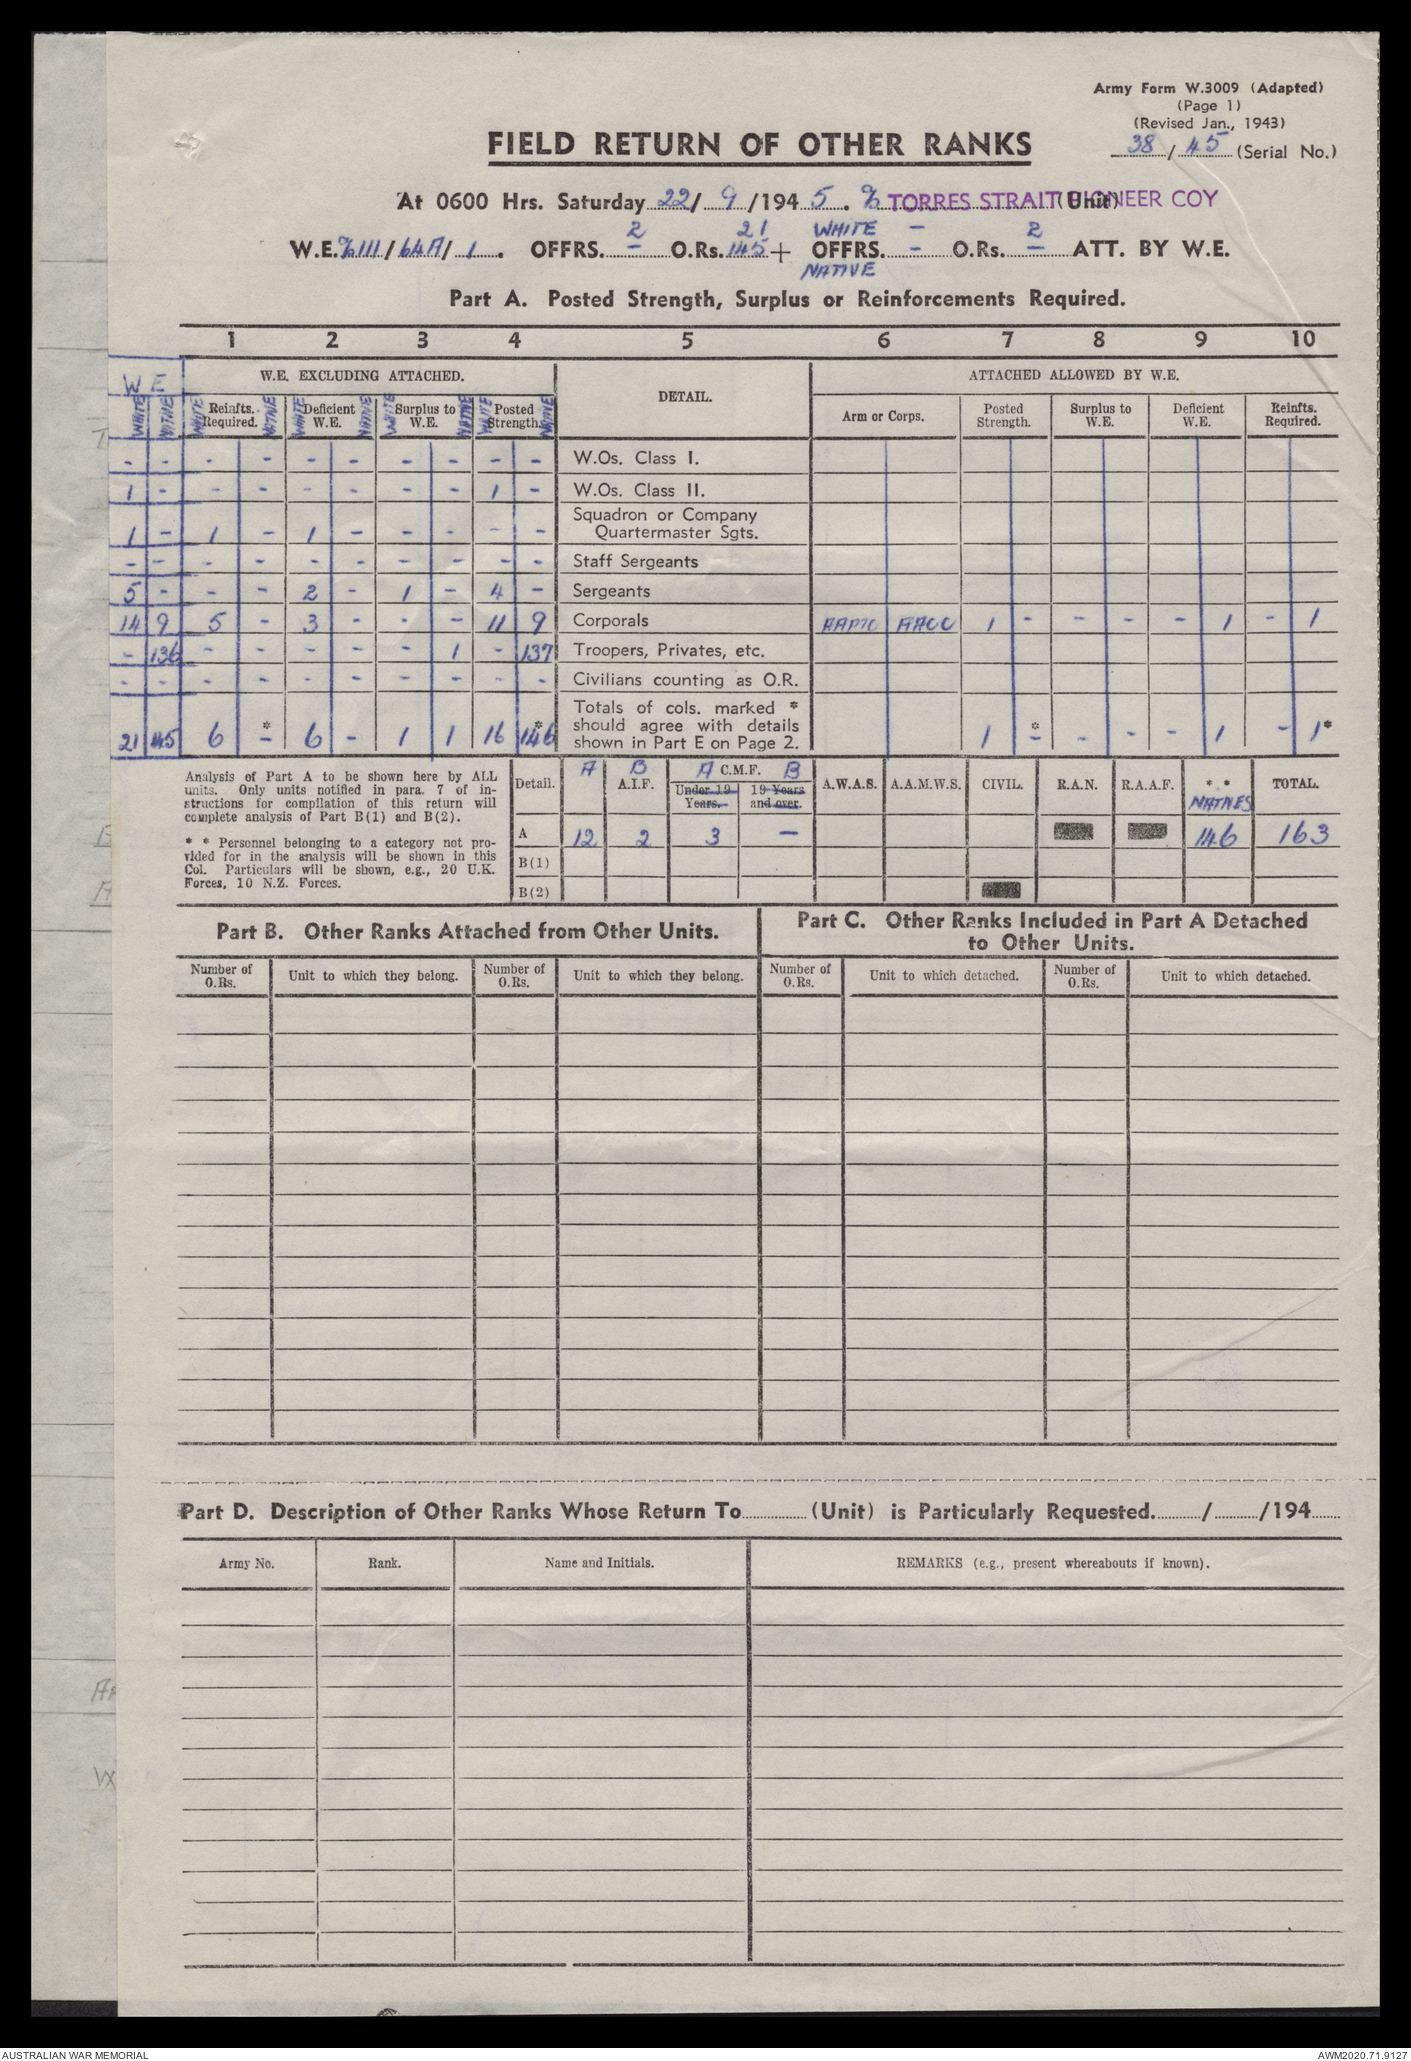 Army Form W.3009 (Adapted)
(Page 1)
(Revised Jan., 1943)
38 / 45 (Serial No.)
FIELD RETURN OF OTHER RANKS
At 0600 Hrs. Saturday 22/ 9 /194 5. % TORRES STRAIT PIONEER COY (Unit)
2 21 WHITE - 2
W.E. %III / 64A / 1 . OFFRS. - O.Rs. 145 + OFFRS. - O.Rs. - ATT. BY W.E.
NATIVE
Part A. Posted Strength, Surplus or Reinforcements Required.
1 2 3 4 5 6 7 8 9 10
W E W.E. EXCLUDING ATTACHED. DETAIL. ATTACHED ALLOWED BY W.E.
WHITE NATIVE WHITE Reinfts. Required. NATIVE WHITE Deficient W.E. NATIVE WHITE Surplus to W.E. NATIVE WHITE Posted Strength. NATIVE Arm or Corps. Posted Strength. Surplus to W.E. Deficient W.E. Reinfts. Required.
- - - - - - - - - - W.Os. Class I.
1 - - - - - - - 1 - W.Os. Class II.
Squadron or Company
1 - 1 - 1 - - - - - Quartermaster Sgts.
- - - - - - - - - - Staff Sergeants
5 - - - 2 - 1 - 4 - Sergeants
14 9 5 - 3 - - - 11 9 Corporals AAMC AACC 1 - - - - 1 - 1
- 136 - - - - - 1 - 137 Troopers, Privates, etc.
- - - - - - - - - - Civilians counting as O.R.
Totals of cols. marked *
* * should agree with details * *
21 145 6 - 6 - 1 1 16 146 shown in Part E on Page 2. 1 - - - - 1 - 1
Analysis of Part A to be shown here by ALL
units. Only units notified in para. 7 of in-
structions for compilation of this return will
complete analysis of Part B(1) and B(2).
* * Personnel belonging to a category not pro-
vided for in the analysis will be shown in this
Col. Particulars will be shown, e.g., 20 U.K.
Forces, 10 N.Z. Forces.
A B A C.M.F. B
Detail. A.I.F. Under 19 Years. 19 Years and over. A.W.A.S. A.A.M.W.S. CIVIL. R.A.N. R.A.A.F. * * NATIVES TOTAL.
A 12 2 3 - 146 163
B(1)
B(2)
Part B. Other Ranks Attached from Other Units.
Part C. Other Ranks Included in Part A Detached
to Other Units.
Number of O.Rs. Unit to which they belong. Number of O.Rs. Unit to which they belong. Number of O.Rs. Unit to which detached. Number of O.Rs. Unit to which detached.
Part D. Description of Other Ranks Whose Return To............(Unit) is Particularly Requested......../......../194......
Army No. Rank. Name and Initials. REMARKS (e.g., present whereabouts if known).
AUSTRALIAN WAR MEMORIAL
AWM2020.71.9127